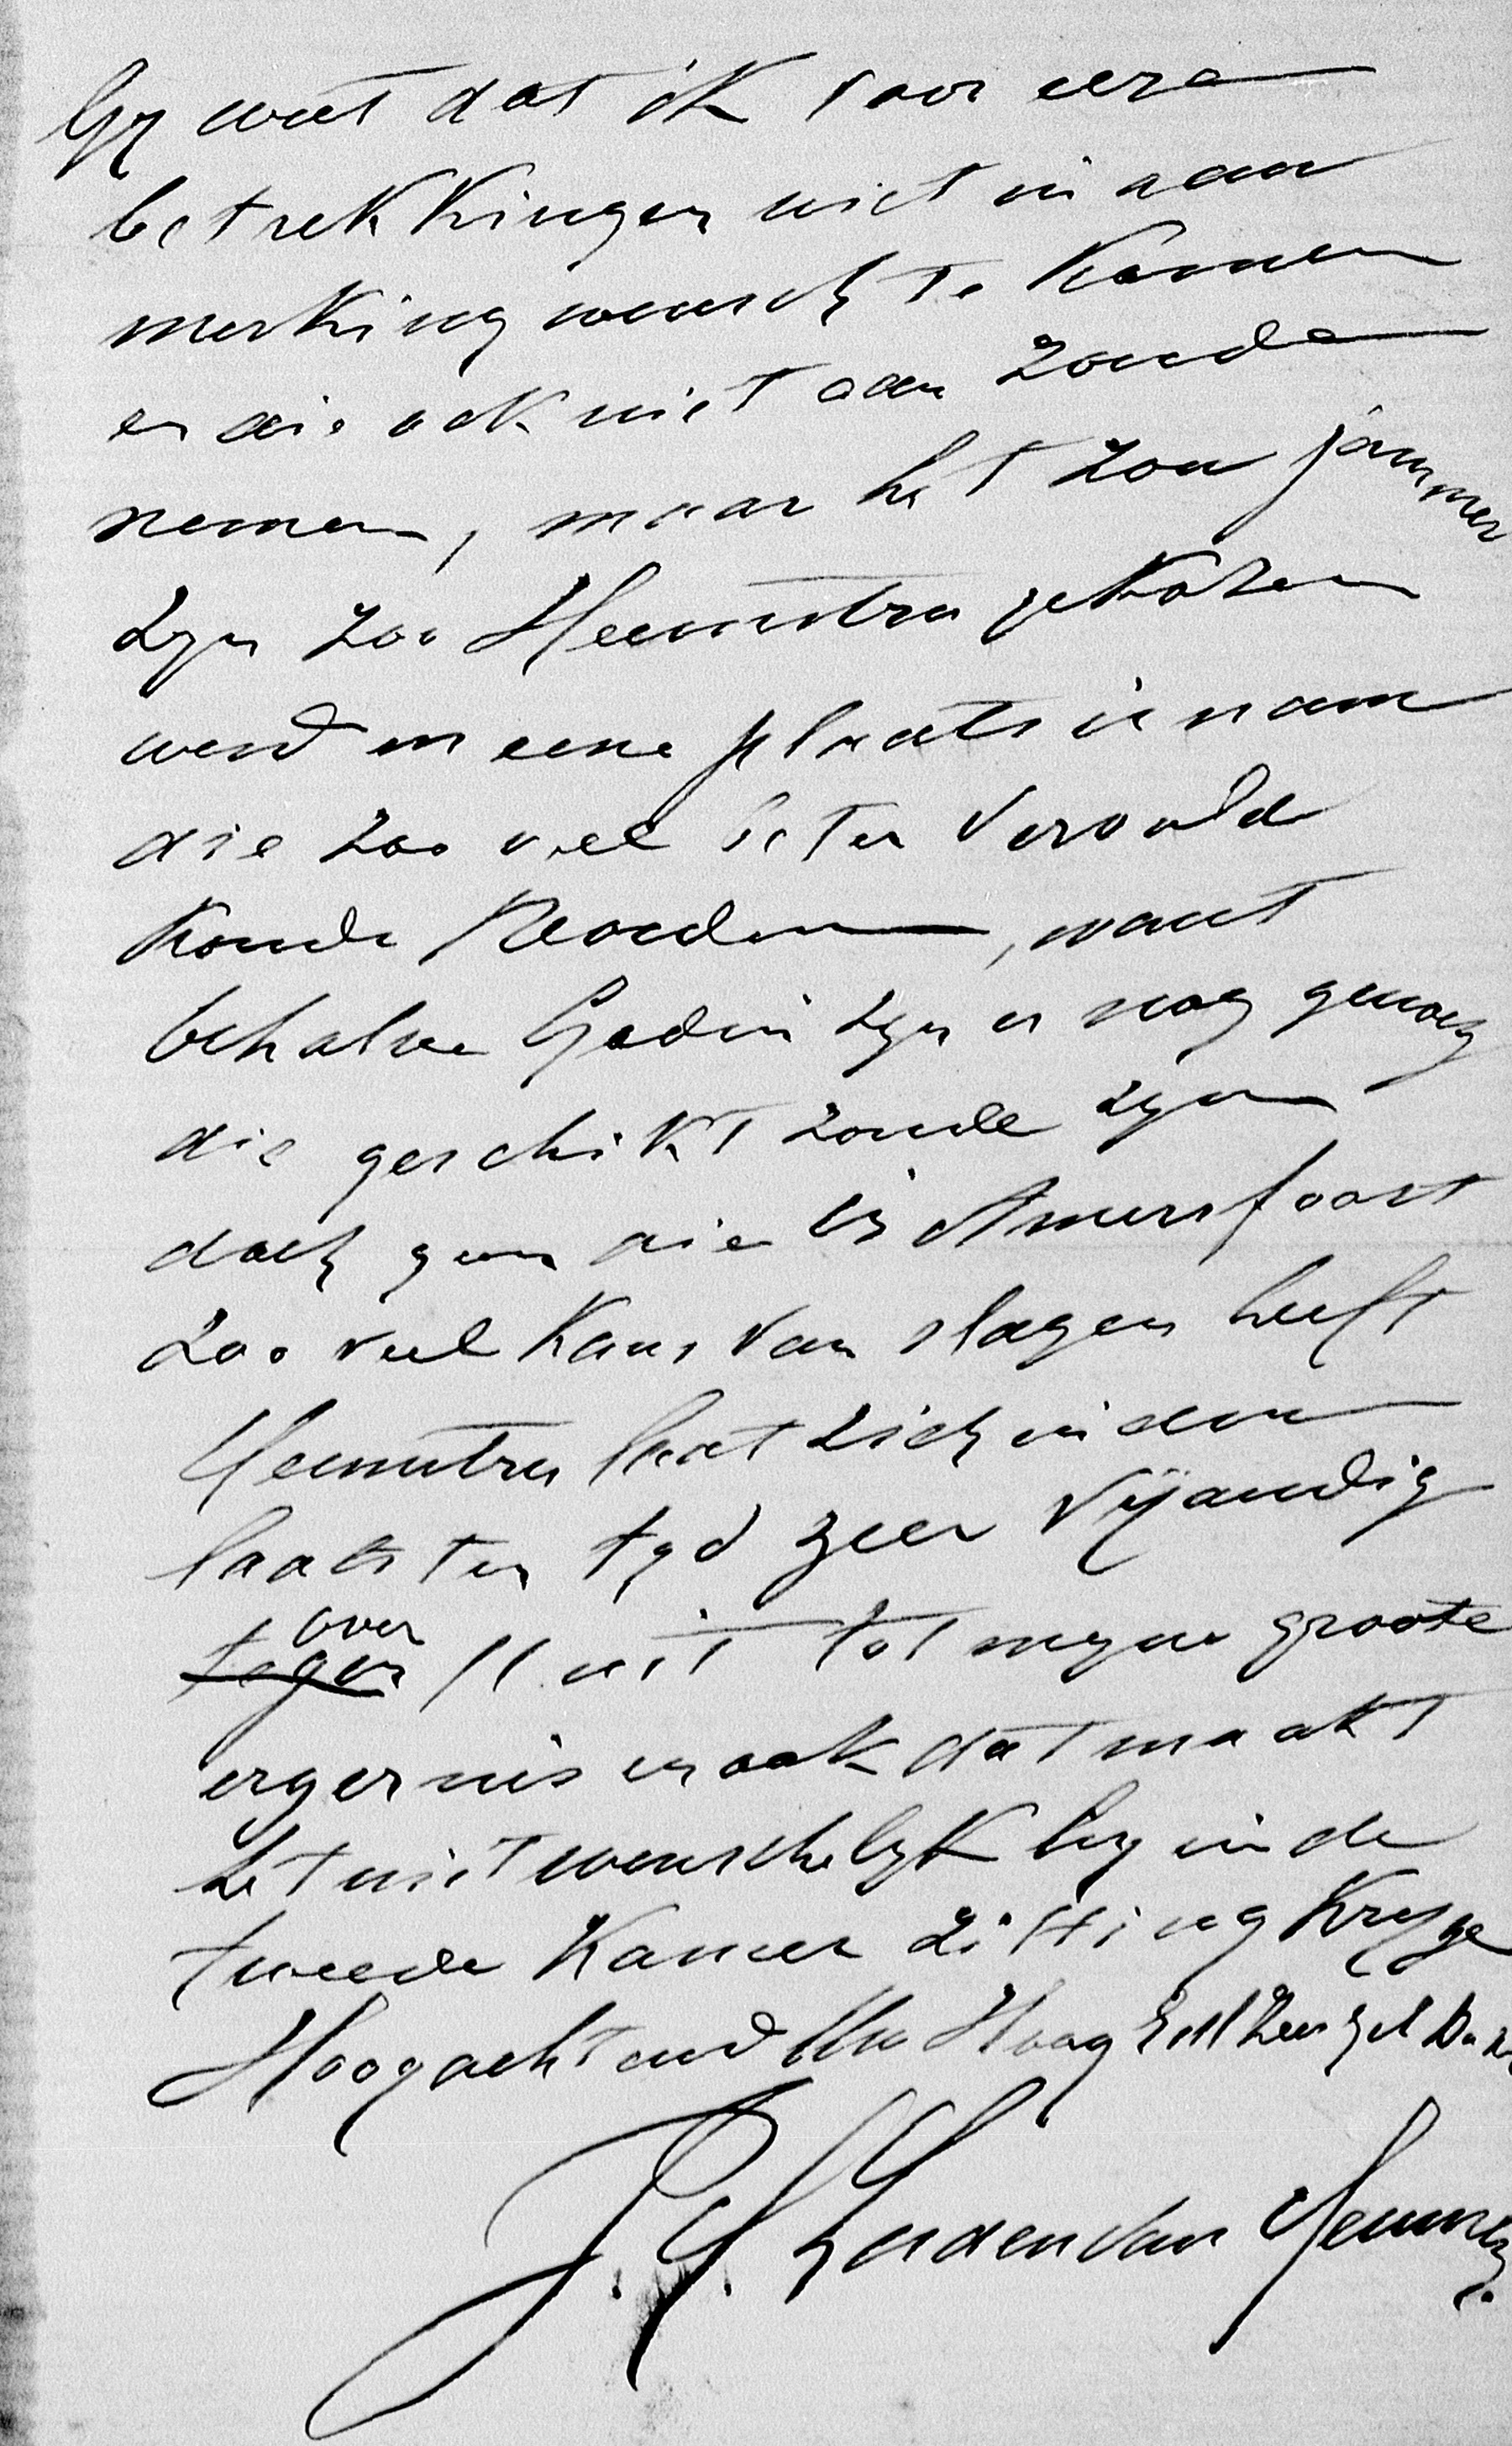 Gy weet dat ik voor eere
betrekkingen niet in aan
merking wensch te komen
en die ook niet aan zoude
nemen, maar het zou jammer
zyn zoo Heemstra gekozen
werd en eene plaats innam
die zoo veel beter vervuld
konde worden, want
behalve Godin zyn er nog genoeg
die geschikt zoude zyn
doch geen die in Amersfoort
zoo veel kans van slagen heeft
Heemstra laat zich in den
laatsten tyd zeer vijandig
over
tegen U uit tot myne groote
ergernis en ook dat maakt
het niet wenschelyk hy in de
tweede Kamer zitting kryge
Hoogachtend Uw Hoog
van